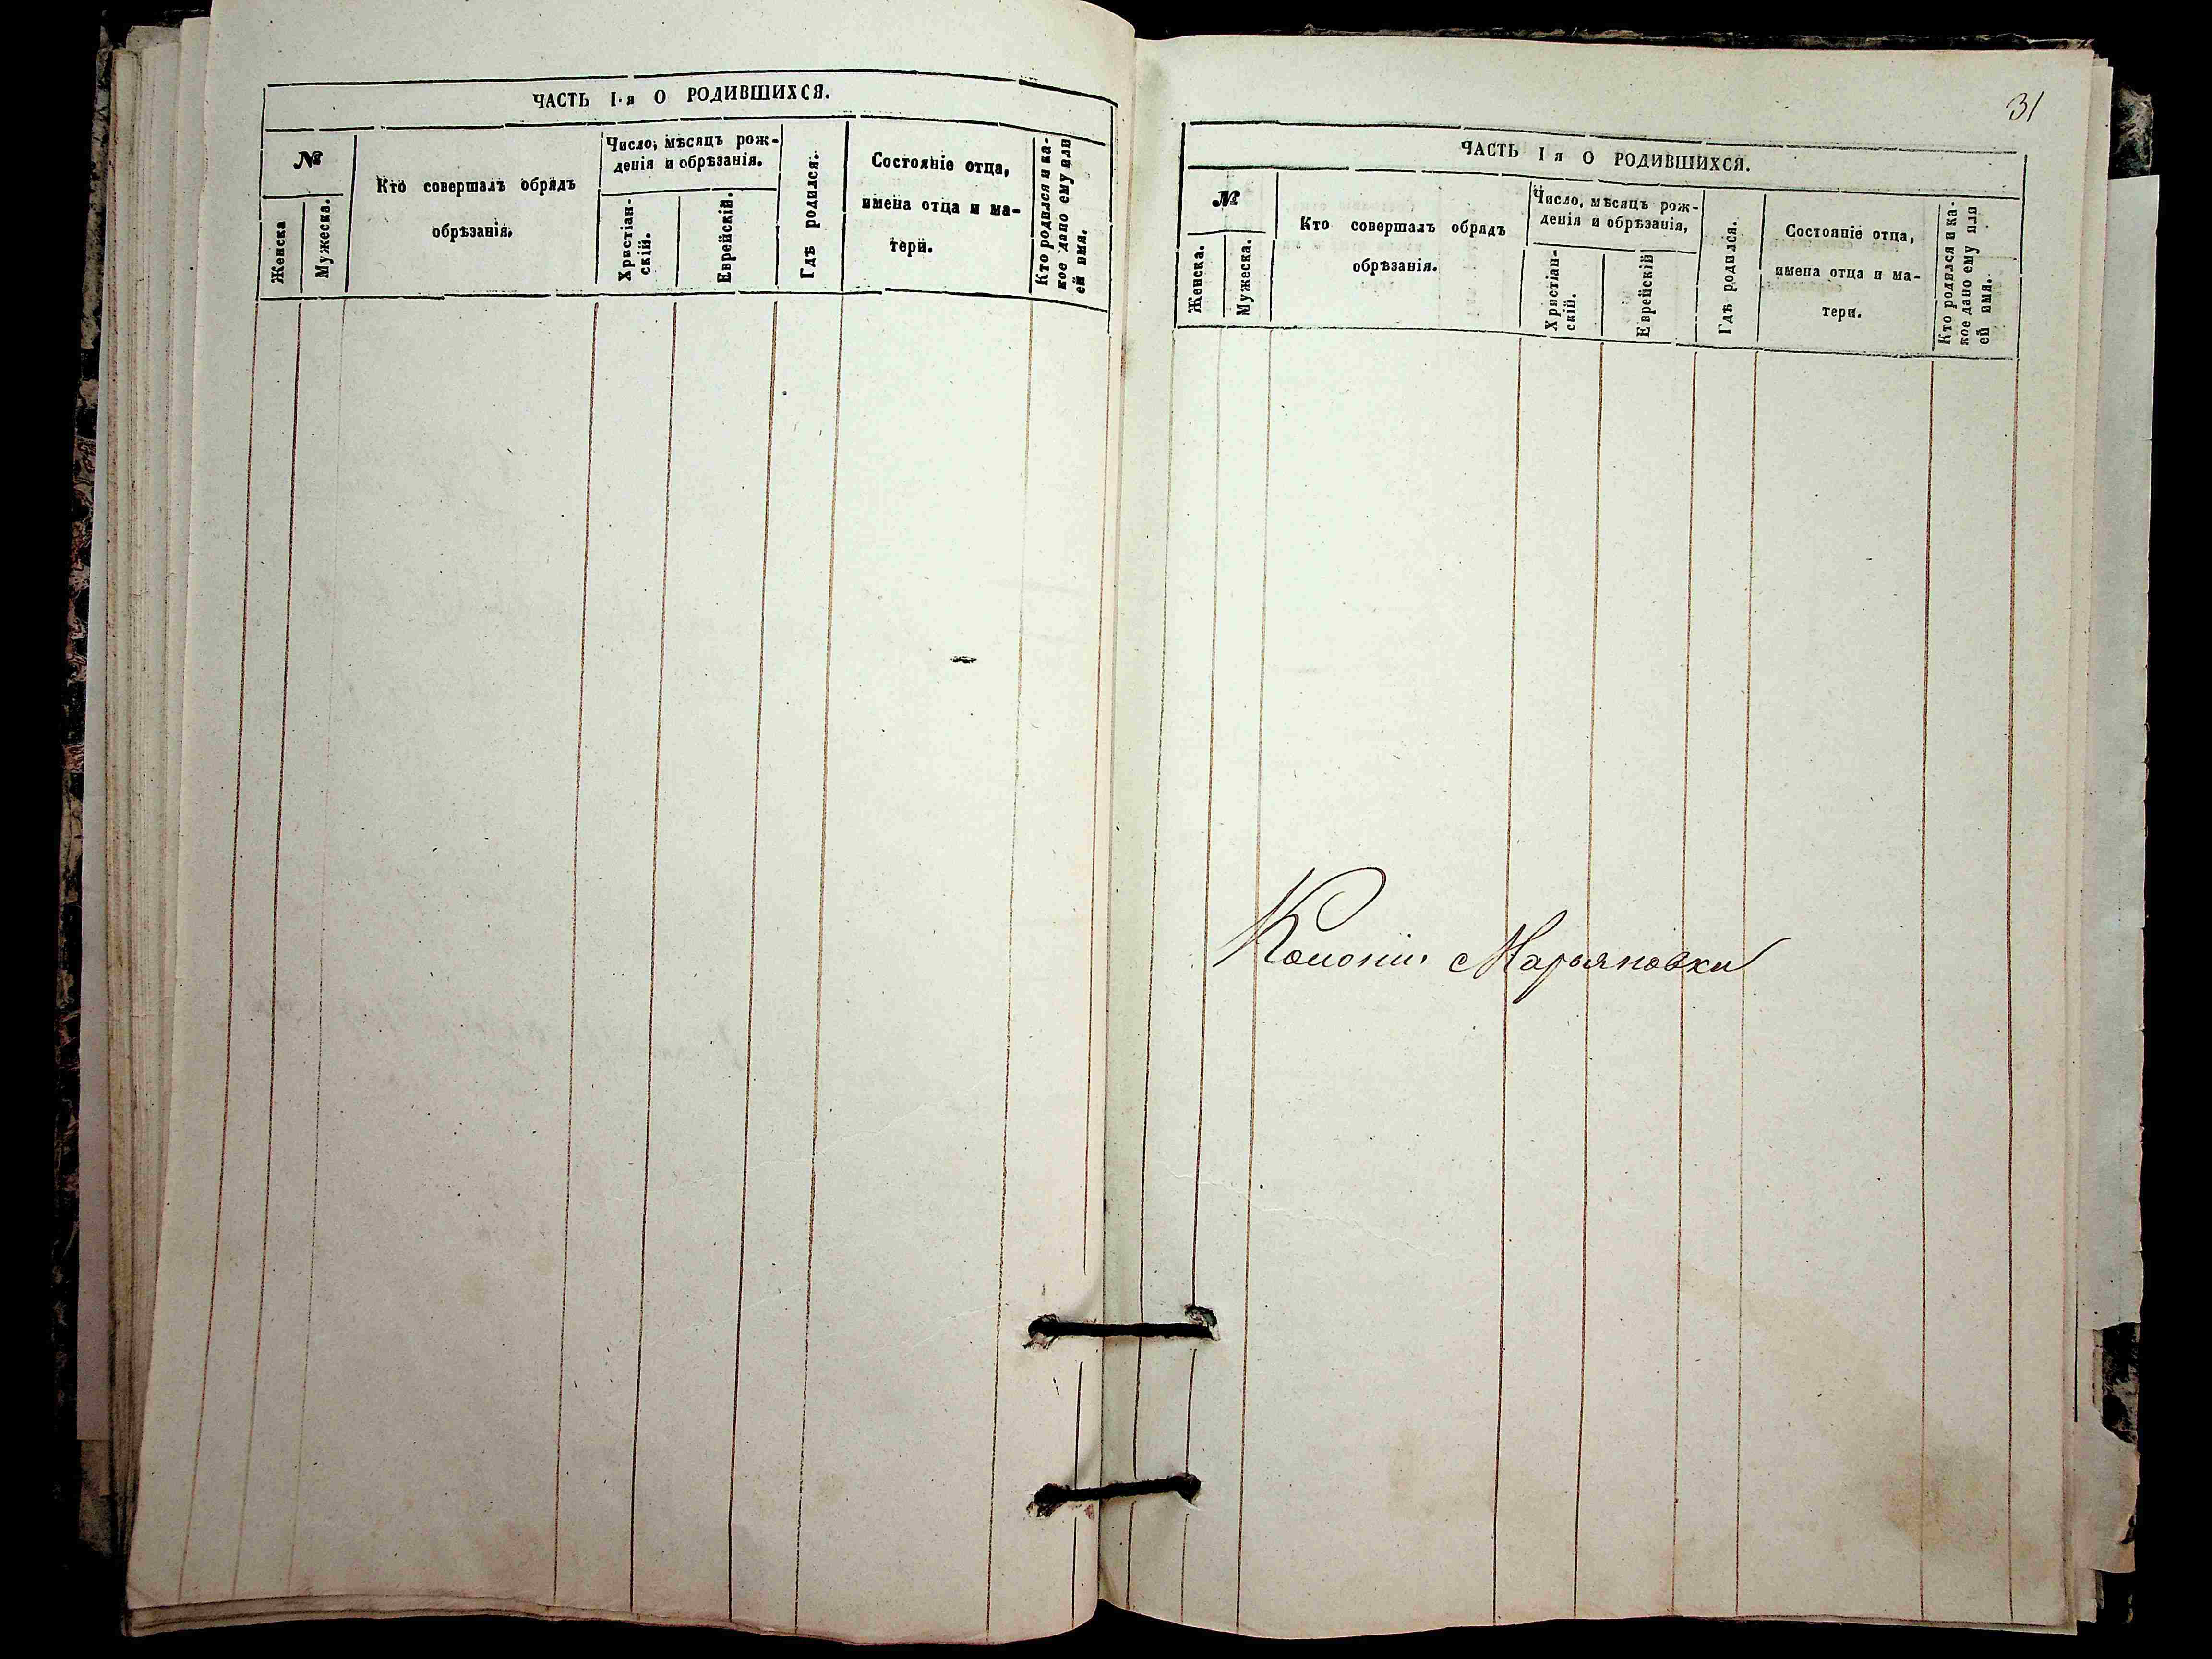 ЧАСТЬ I·я О РОДИВШИХСЯ.
№
Женска
Мужеска.
Кто совершалъ обрядъ
обрѣзанія.
Число, мѣсяцъ рож-
денія и обрѣзанія.
Христіан-
скій.
Еврейскій.
Гдѣ родился.
Состояніе отца,
имена отца и ма-
тери.
Кто родился и ка-
кое дано ему или
ей имя.
31
ЧАСТЬ I я О РОДИВШИХСЯ.
№
Женска.
Мужеска.
Кто совершалъ обрядъ
обрѣзанія.
Число, мѣсяцъ рож-
денія и обрѣзанія,
Христіан-
скій.
Еврейскій
Гдѣ родился.
Состояніе отца,
имена отца и ма-
тери.
Кто родился и ка-
кое дано ему или
ей имя.
Колоніи Марьяновки